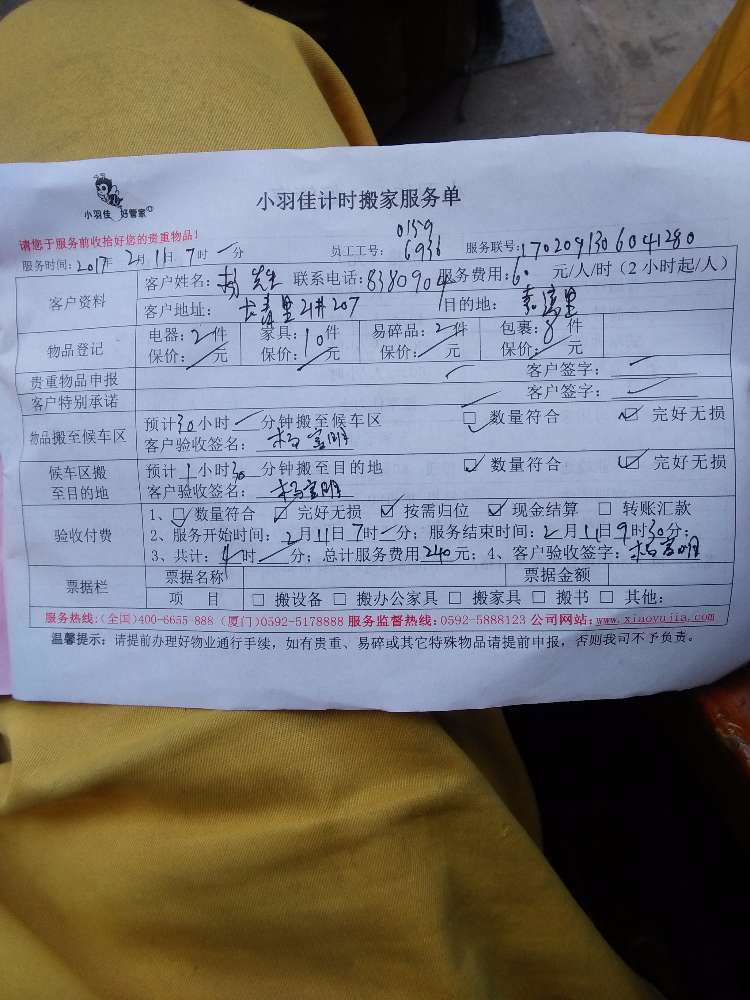 小羽佳 好管家
小羽佳计时搬家服务单
请您于服务前收拾好您的贵重物品！
0159
服务时间：2017年2月11日7时 分 员工工号：6936 服务联号：1702091306041280
客户资料 客户姓名：杨先生 联系电话：8380904 服务费用：60 元/人/时（2小时起/人）
客户地址：长青里2#207 目的地：嘉福里
物品登记 电器：2件 家具：10件 易碎品：2件 包裹：8件
保价： 元 保价： 元 保价： 元 保价： 元
贵重物品申报 客户签字：
客户特别承诺 客户签字：
物品搬至候车区 预计30小时 分钟搬至候车区 ☐ 数量符合 ☑ 完好无损
客户验收签名：
候车区搬至目的地 预计1小时30分钟搬至目的地 ☑ 数量符合 ☑ 完好无损
客户验收签名：
验收付费 1、☑ 数量符合 ☑ 完好无损 ☑ 按需归位 ☑ 现金结算 ☐ 转账汇款
2、服务开始时间：2月11日7时 分；服务结束时间：2月11日9时30分；
3、共计：4时 分；总计服务费用240元；4、客户验收签字：
票据栏 票据名称 票据金额
项 目 ☐ 搬设备 ☐ 搬办公家具 ☐ 搬家具 ☐ 搬书 ☐ 其他：
服务热线：(全国)400-6655-888 (厦门)0592-5178888 服务监督热线：0592-5888123 公司网站：www.xiaoyujia.com
温馨提示：请提前办理好物业通行手续，如有贵重、易碎或其它特殊物品请提前申报，否则我司不予负责。